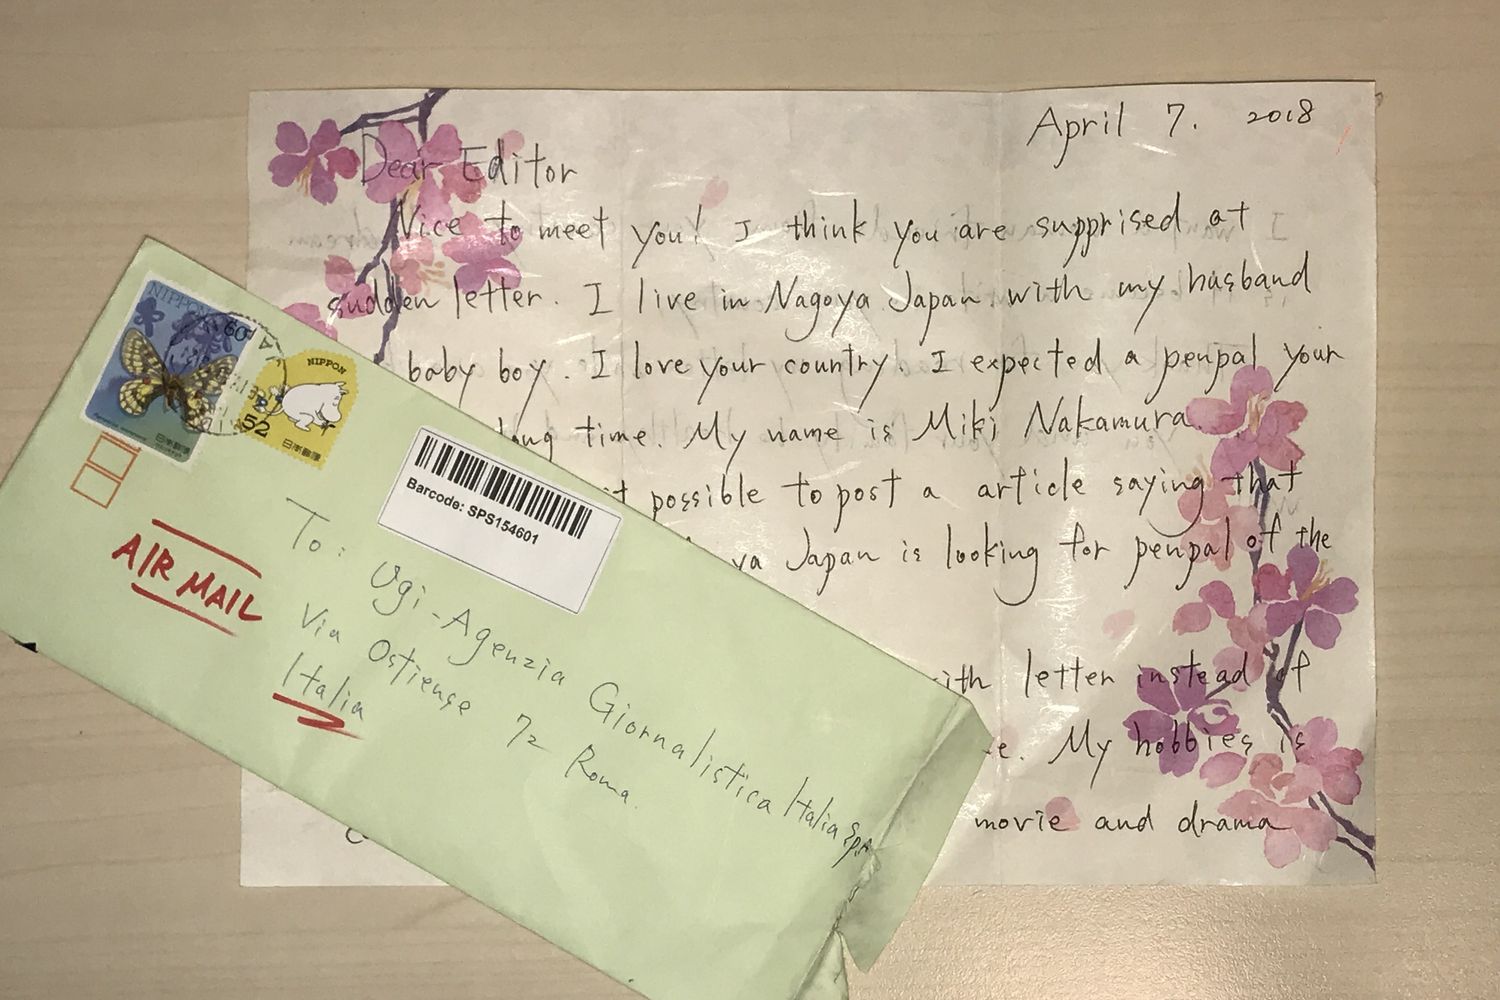 April 7. 2018
Dear Editor
Nice to meet you! I think you are supprised at
sudden letter. I live in Nagoya Japan with my husband
baby boy. I love your country. I expected a penpal your
long time. My name is Miki Nakamura.
it possible to post a article saying that
ya Japan is looking for penpal of the
ith letter instead of
e. My hobbies is
movie and drama
NIPPON
60
NIPPON
52
日本郵便
日本郵便
Barcode: SPS154601
AIR MAIL
To:
Ugi-Agenzia Giornalistica Italia SpA
Via Ostiense 72 Roma.
Italia